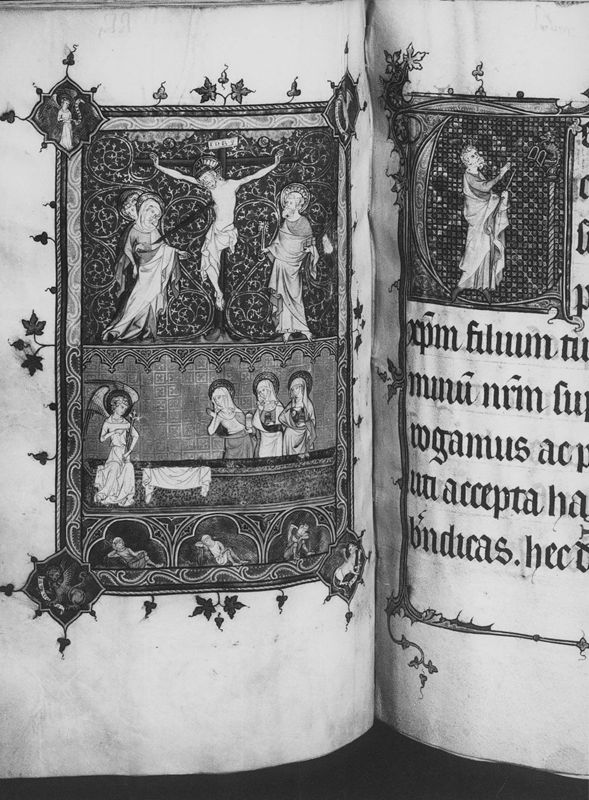 INRI
xp̄m filium tu
munū nr̄m sup
rogamus ac p
uti accepta ha
b̄ndicas. hec d